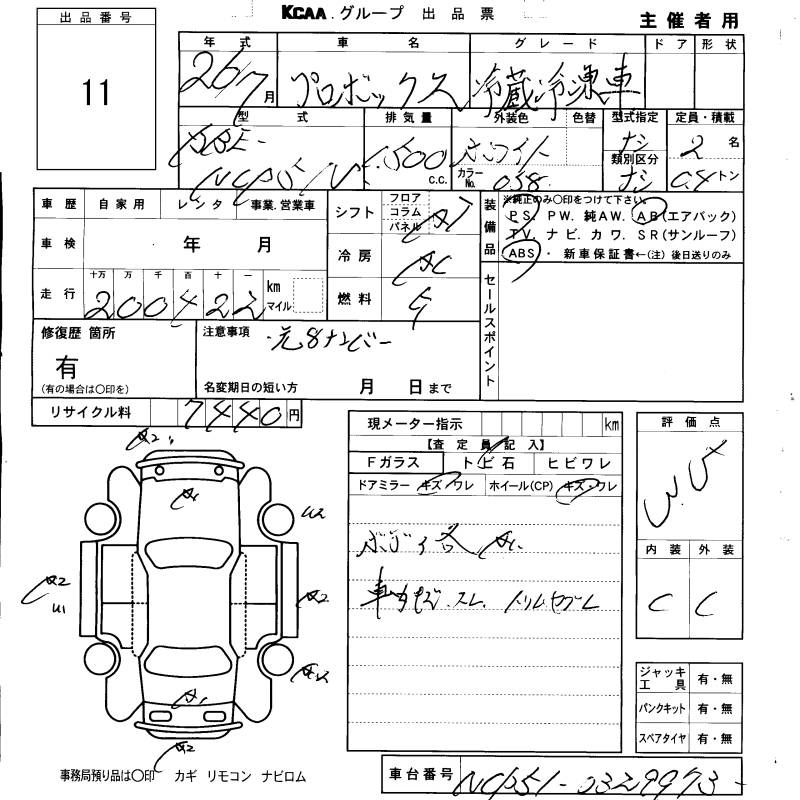 出品番号
11
KCAA.グループ 出品票
主催者用
年式 車名 グレード ドア 形状
26/7月 プロボックス 冷蔵冷凍車
型式 排気量 外装色 色替 型式指定 定員・積載
DBE-
NCP51V
1500 c.c.
ホワイト
カラーNo. 058
ナシ
類別区分
ナシ
2 名
0.4 トン
車歴 自家用 レンタ 事業.営業車
車検 年 月
走行 十万 万 千 百 十 一 km マイル
200422
シフト フロア コラム パネル AT
冷房 AC
燃料 G
装備品
※純正のみ〇印をつけて下さい。
PS. PW. 純AW. AB(エアバック)
TV. ナビ. カワ. SR(サンルーフ)
ABS ・ 新車保証書←(注) 後日送りのみ
セールスポイント
修復歴 箇所
有
(有の場合は〇印を)
注意事項
元8ナンバー
名変期日の短い方 月 日まで
リサイクル料 7440円
現メーター指示 km
【査定員記入】
Fガラス トビ石 ヒビワレ
ドアミラー キズ・ワレ ホイール(CP) キズ・ワレ
ボディ各 A1.
スレ.
評価点
内装 外装
C C
A2.
A1
U2
A2
U1
A2
A1
A2
ジャッキ工具 有・無
パンクキット 有・無
スペアタイヤ 有・無
事務局預り品は〇印 カギ リモコン ナビロム
車台番号 NCP51-0329973-